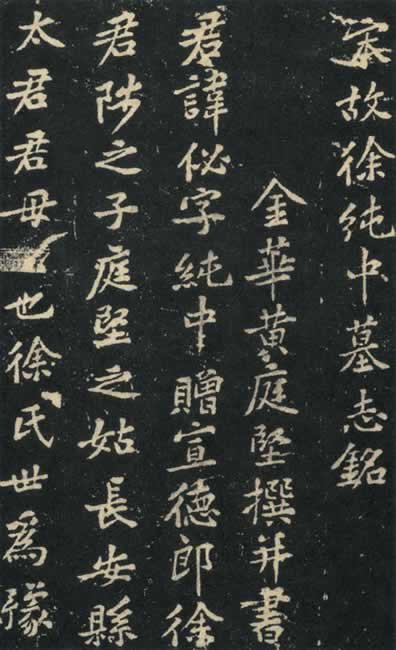 宋故徐純中墓志銘
金華黄庭堅撰并書
君諱佖字純中贈宣德郎徐
君陟之子庭堅之姑長安縣
太君君母也徐氏世爲豫